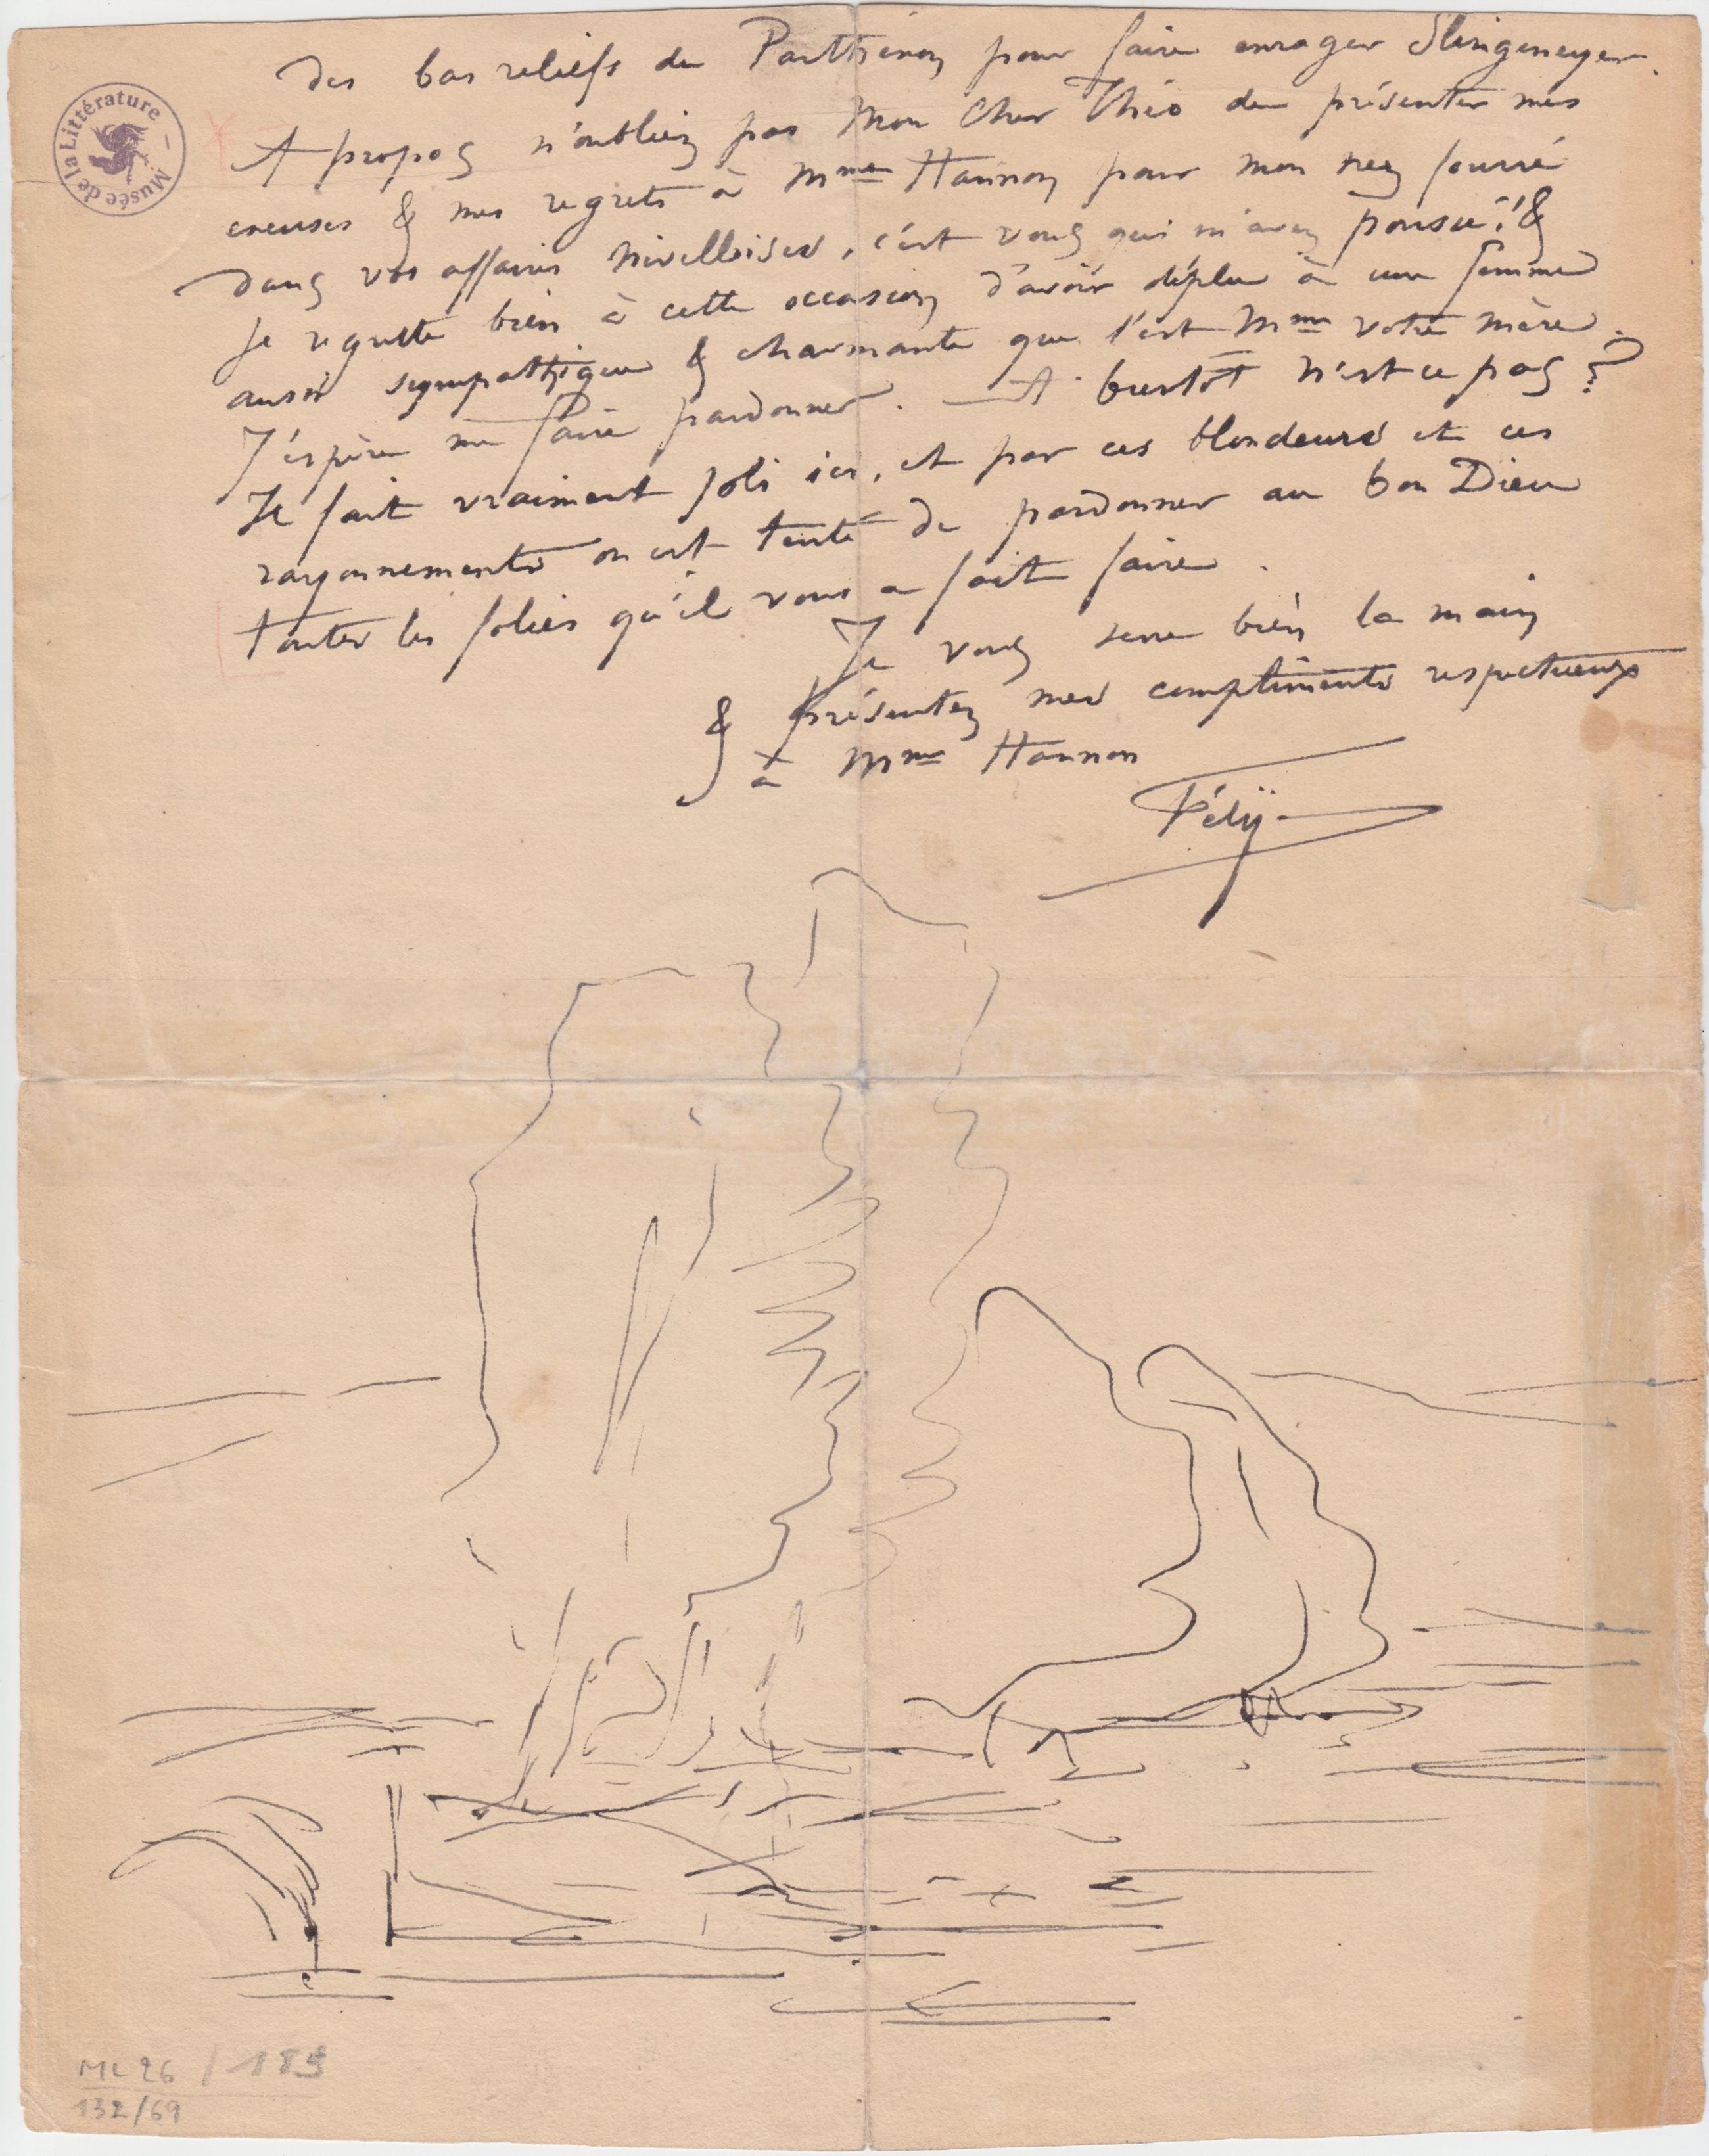 des bas reliefs du Parthénon pour faire enrager Slingeneyer.
A propos n'oubliez pas Mon Cher Théo de présenter mes
excuses & mes regrets à Mme Hannon pour mon nez fourré
dans vos affaires nivelloises, c'est vous qui m'avez poussé! &
je regrette bien à cette occasion d'avoir déplu à une femme
aussi sympathique & charmante que l'est Mme votre mère.
J'espère me faire pardonner. — A bientôt n'est ce pas?
Il fait vraiment joli ici, et par ces blondeurs et ces
rayonnements on est tenté de pardonner au bon Dieu
toutes les folies qu'il vous a fait faire.
Je vous serre bien la main
& présentez mes compliments respectueux
à Mme Hannon
Fély
Musée de la Littérature –
ML 26 / 189
132/69